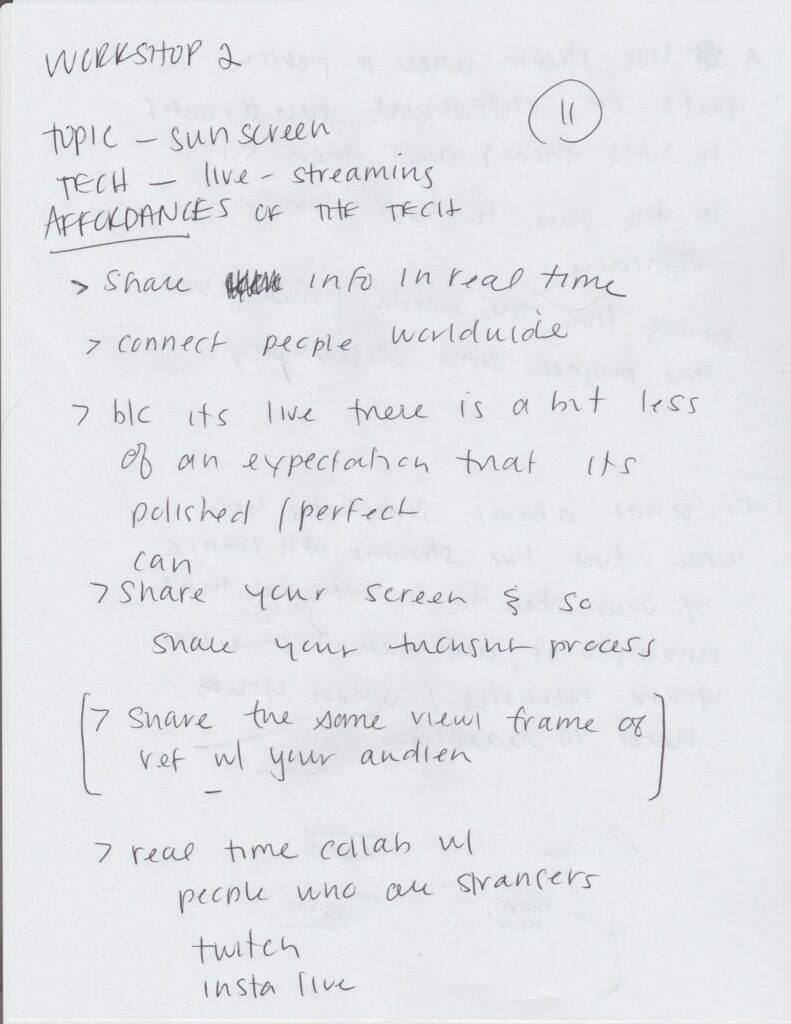 WORKSHOP 2
11
topic – sunscreen
TECH – live-streaming
AFFORDANCES OF THE TECH
> share info in real time
> connect people worldwide
> b/c its live there is a bit less
of an expectation that its
polished / perfect
can
> share your screen & so
share your thought process
[> share the same view/ frame of
ref w/ your audien]
> real time collab w/
people who are strangers
twitch
insta live